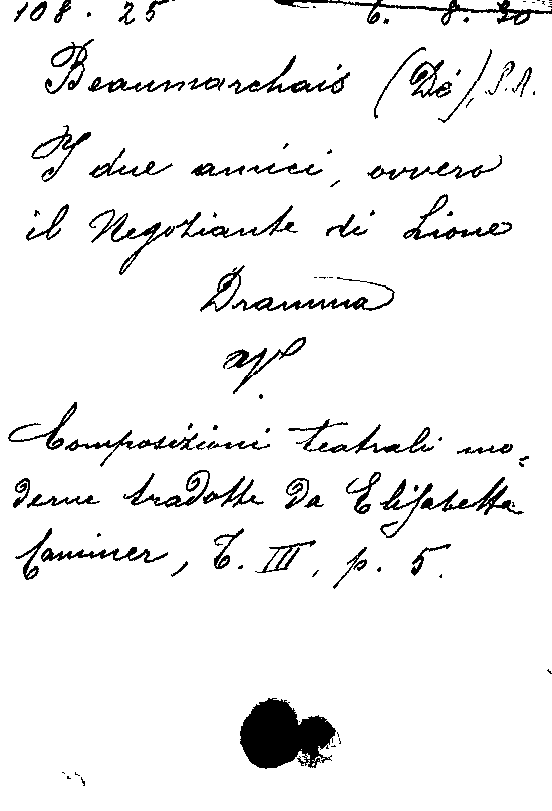 108. 25 6. 8. 30
Beaumarchais (De), P. A.
I due amici, ovvero
il Negoziante di Lione
Dramma
Composizioni teatrali mo-
derne tradotte da Elisabetta
Caminer, T. III, p. 5.